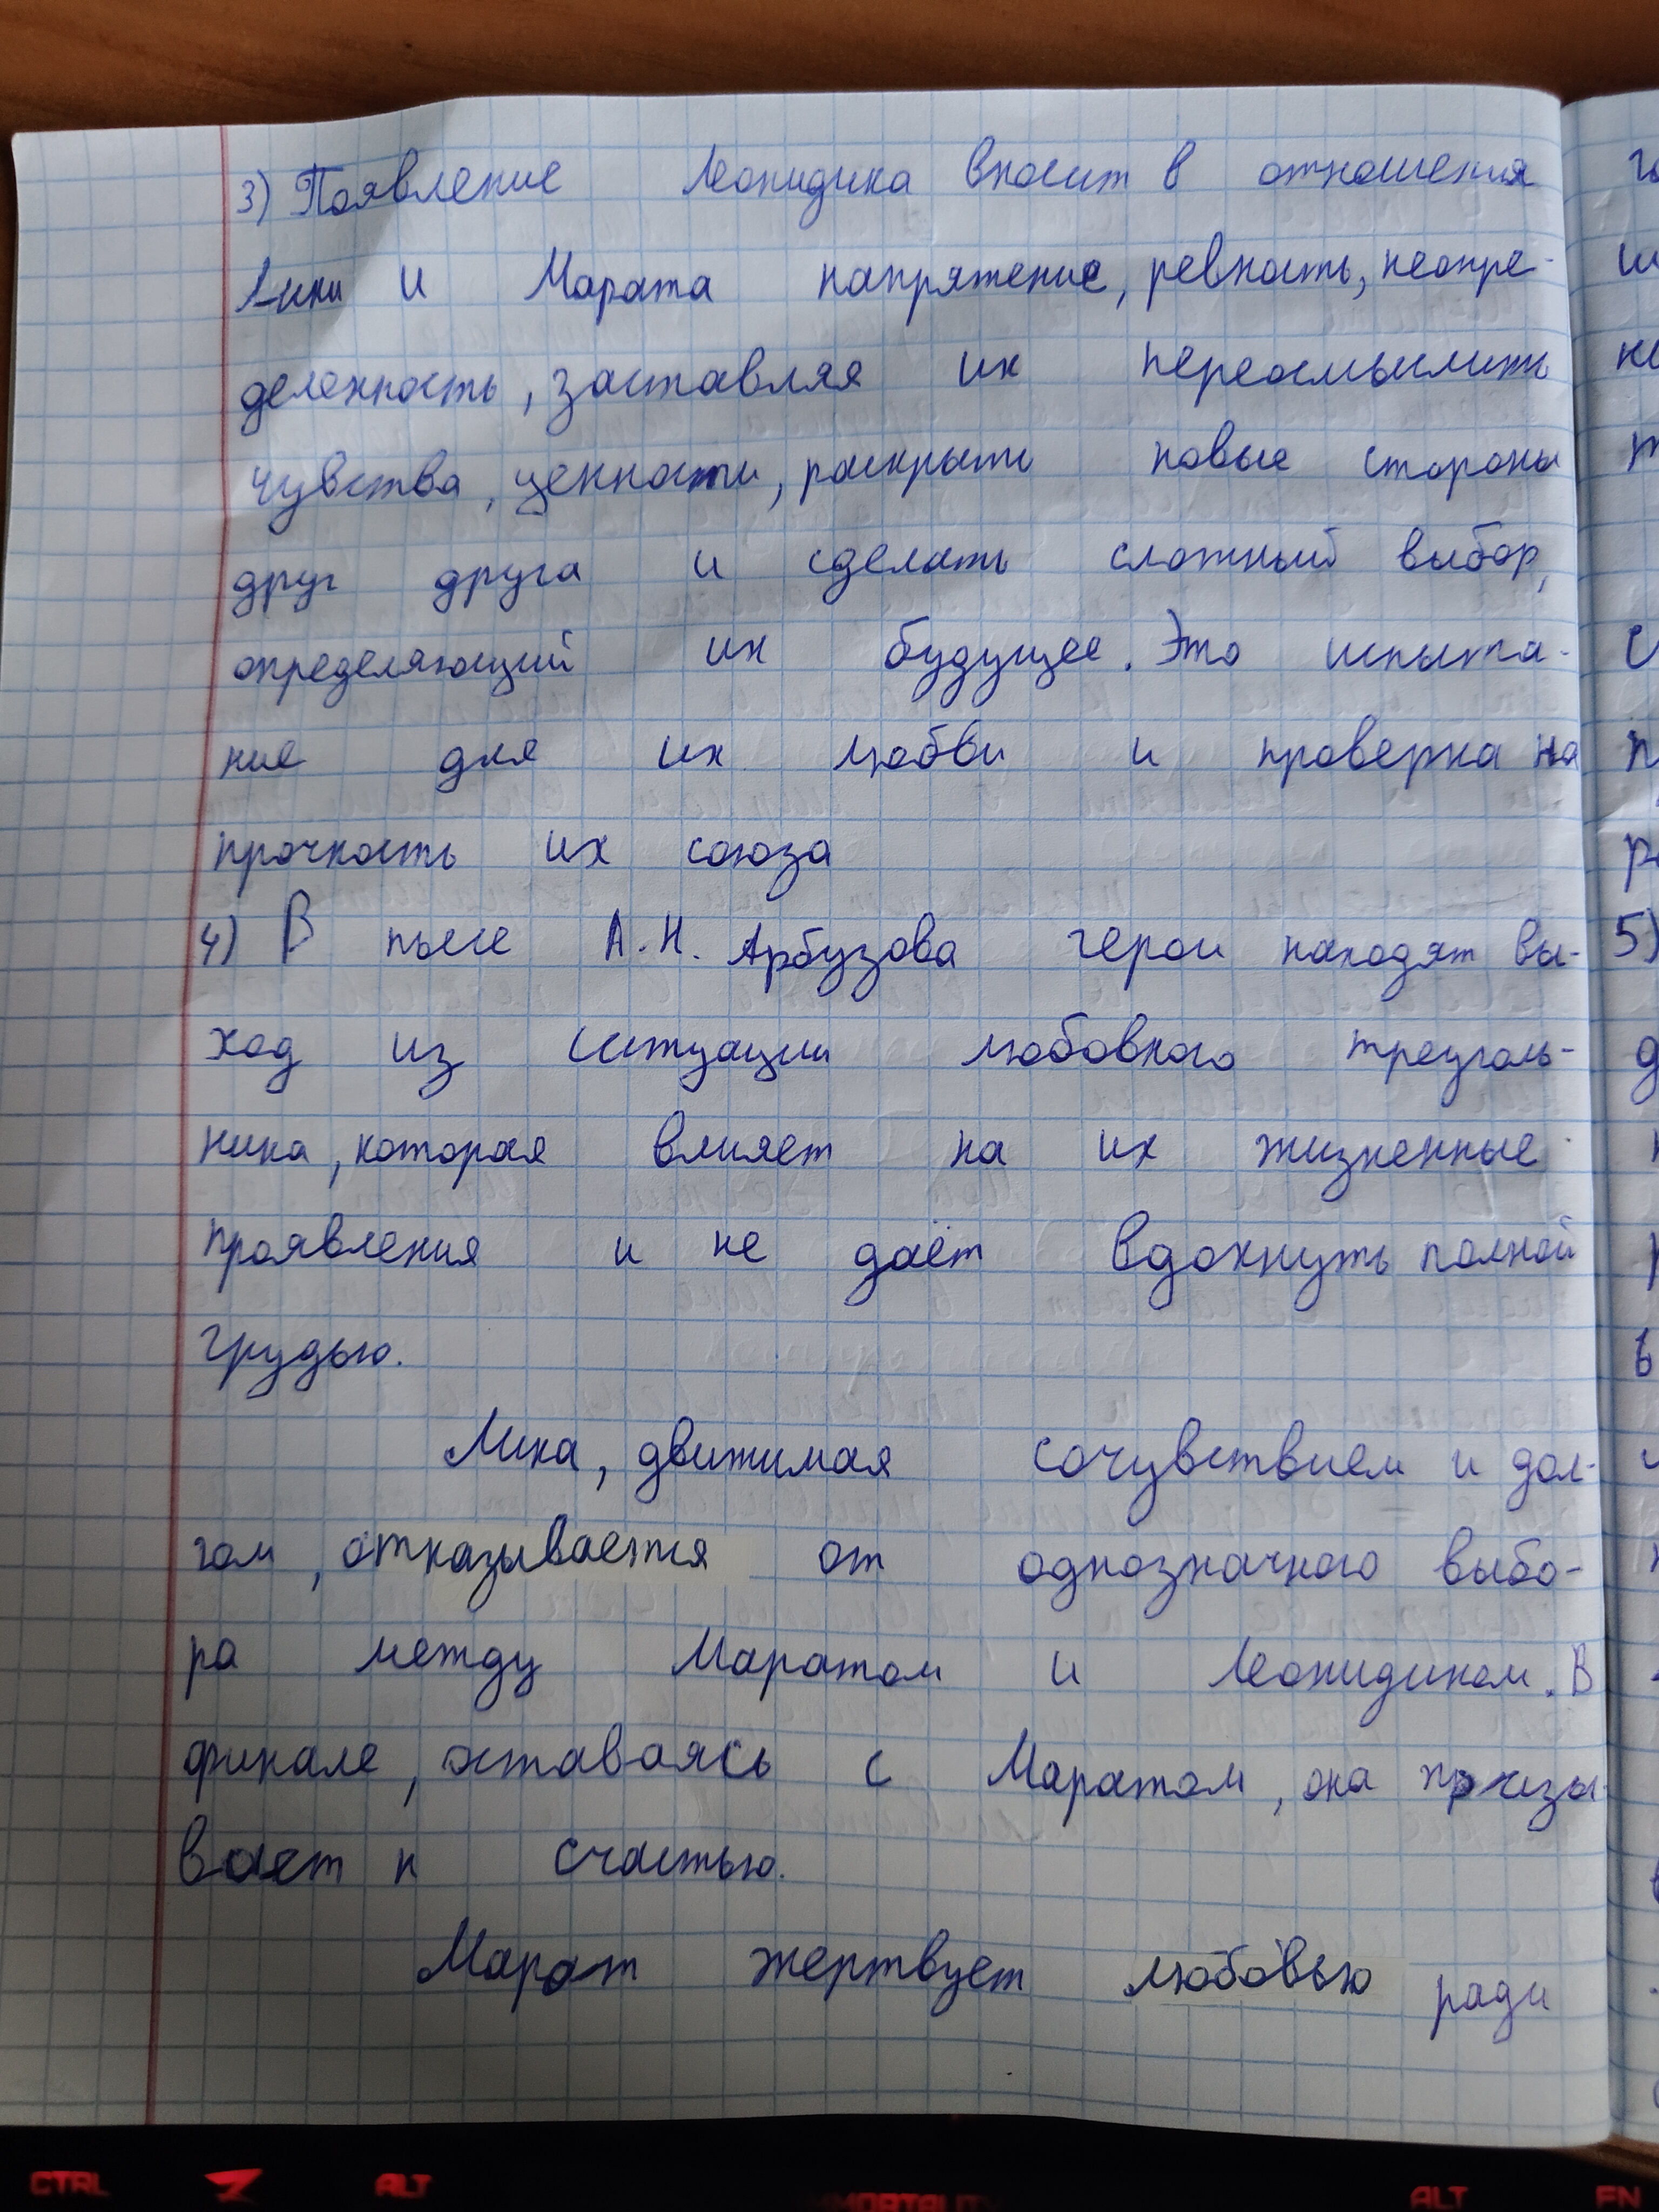 3) Появление Леонидика вносит в отношения
Лики и Марата напряжение, ревность, неопре-
деленность, заставляя их переосмыслить
чувства, ценности, раскрыть новые стороны
друг друга и сделать сложный выбор,
определяющий их будущее. Это испыта-
ние для их любви и проверка на
прочность их союза
4) В пьесе А.Н. Арбузова герои находят вы-
ход из ситуации любовного треуголь-
ника, которая влияет на их жизненные
проявления и не даёт вдохнуть полной
грудью.
Лика, движимая сочувствием и дол-
гом, отказывается от однозначного выбо-
ра между Маратом и Леонидиком. В
финале, оставаясь с Маратом, она призы-
вает к счастью.
Марат жертвует любовью ради
5)
CTRL ALT IMMORTALITY ALT FN